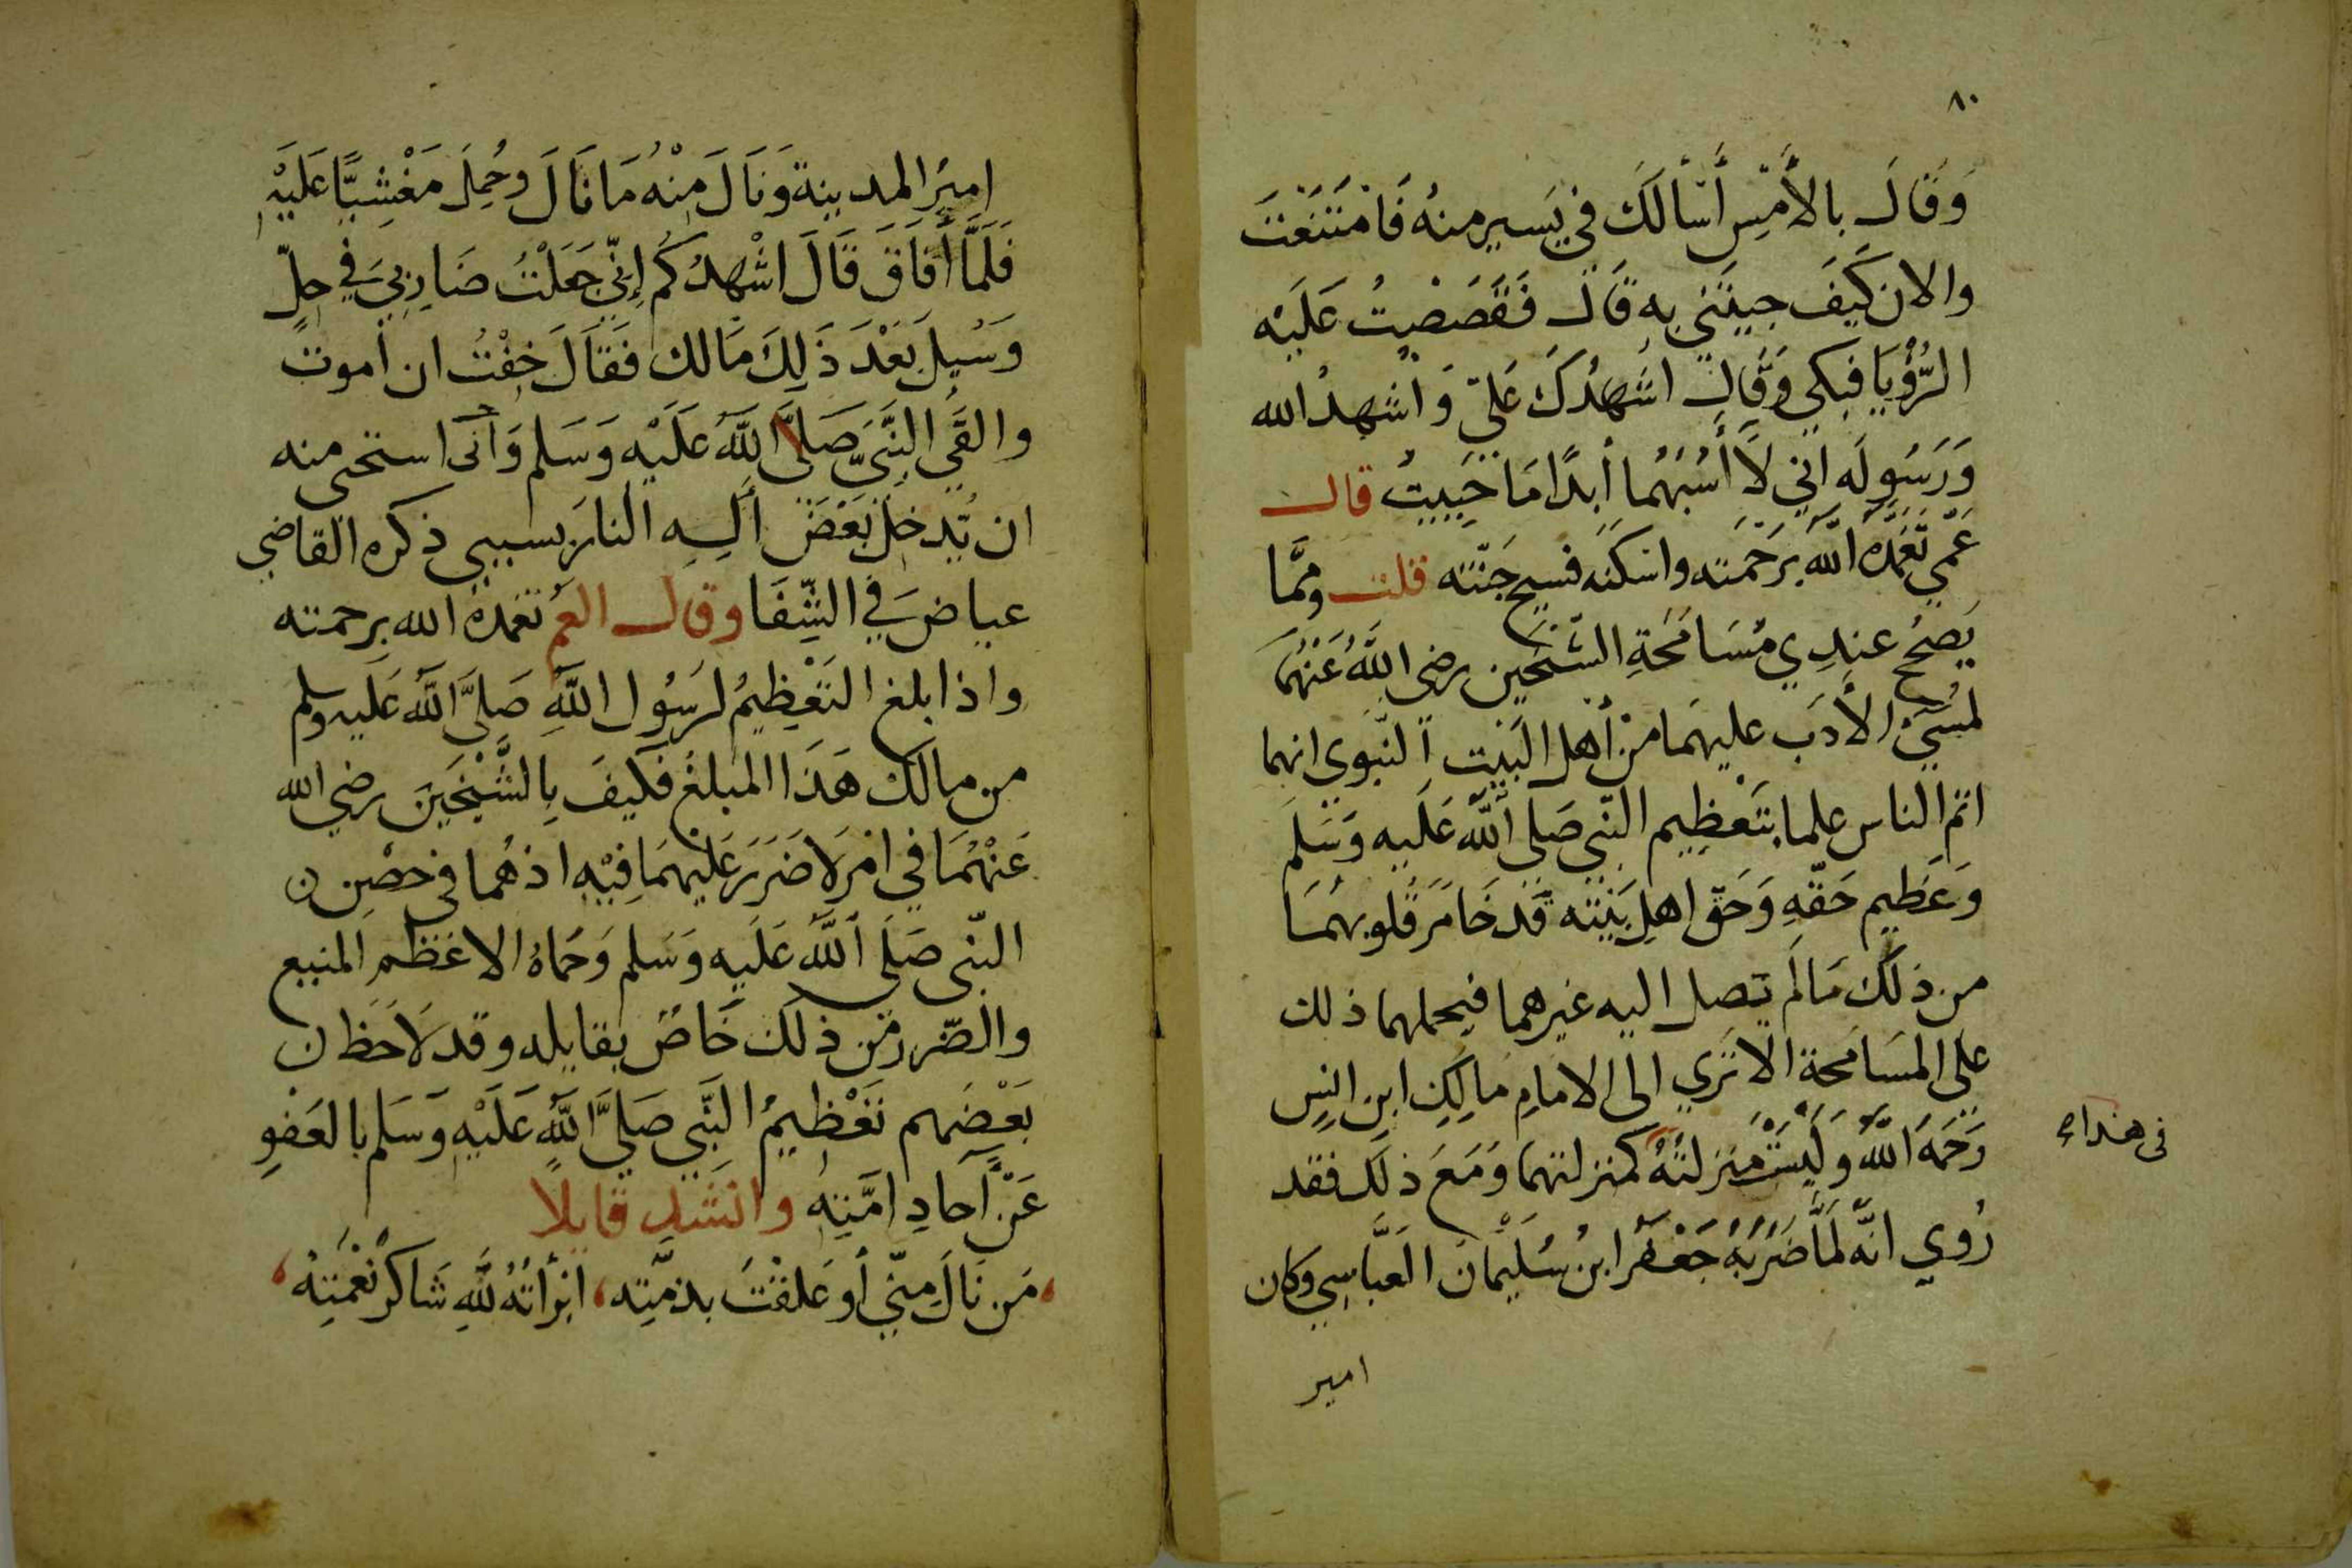 ٨٠
وَقَالَ بالأَمْسِ أَسْأَلكَ في يَسيرٍ منهُ فَامْتَنَعْتَ
والان كَيفَ جيتَني بِه قَالَ فَقَصَصْتُ عَلَيْه
الرُّؤيَا فبكي وَقَال اشهدُكَ عَليّ وَاشهدُ الله
وَرَسُولَه اني لاَ أَسُبُّهُما أبدًا مَا حَيِيتُ قال
عَمّي تَغمَّدَهُ اللهُ برَحْمَته واسكنَه فسيح جَنّته قلت ومِمَّا
يَصحُ عندِي مُسَامَحَةِ الشّيْخَين رضي اللهُ عَنْهُمَا
لمُسيء الأدَب عليهمَا مِنْ أهل البَيْت النّبَوي انهما
اتم الناس علما بتَعْظِيم النّبي صَلي اللهُ عَلَيه وَسَلَم
وَعَظيم حَقّهِ وَحَق اهلِ بَيْته قَد خَامَرَ قُلوبهُمَا
من ذلكَ مَا لَم يَصل اليه غيرهما فيحملهما ذلك
علي المسَامحة الا تَرَي الي الامامِ مَالِكِ ابنِ انسٍ
رَحمَهُ اللهُ وَلَيْسَتْ مَنزلتُهُ كمنزلتهما وَمَعَ ذلك فقد
في هذا
رُوي انّهُ لَمّا ضَرَبَهُ جَعْفَر ابنُ سُلَيْمَان العَبَّاسِي وكان
امير
اميرُ المدينة وَنَالَ مِنْهُ مَا نَالَ وحُمِلَ مَغْشِيًّا عَلَيْهِ
فَلَمَّا أَفَاقَ قَالَ اشْهِدُكُم إِنّي جَعَلْتُ ضَارِبيَ في حِلٍّ
وَسُيلَ بَعْدَ ذَلِكَ مَالك فَقَالَ خِفْتُ ان اموتَ
والقَي النَّبيّ صَلَّي اللَّهُ عَلَيْه وَسَلم وَاني استحي منه
ان يَدخل بَعْضَ آلِهِ النارَ بسببي ذكره القاضي
عياضَ في الشِّفَا وقال العم تغمدهُ الله برحمته
واذا بلغ التَعْظِيمُ لرَسُول اللهِ صَلَّي اللهُ عَلَيه وسلم
من مالك هَذَا المبلغُ فَكَيفَ بِالشَّيْخَينِ رضي الله
عَنْهُمَا في امْرٍ لاَ ضَرَرَ عَلَيهمَا فِيْهِ اذ هُما في حصْن ن
النّبي صَلَي اللهُ عَلَيه وَسَلم وَحَمَاهُ الاعَظمِ المنيع
والضّرر من ذلكَ خَاصٌ بقايله وقد لاَحَظ ن
بَعْضَهم تَعْظيمُ النَّبي صَلَّي اللهُ عَلَيْهِ وَسَلم بالعَفْوِ
عَنْ آحَادِ امَّتِهِ وانشد قايلاً
مَن نَالَ مِنّي أو عَلِقْتَ بذمَّتِه، ابْرأتهُ للهِ شَاكرُ نعْمَتِهْ،